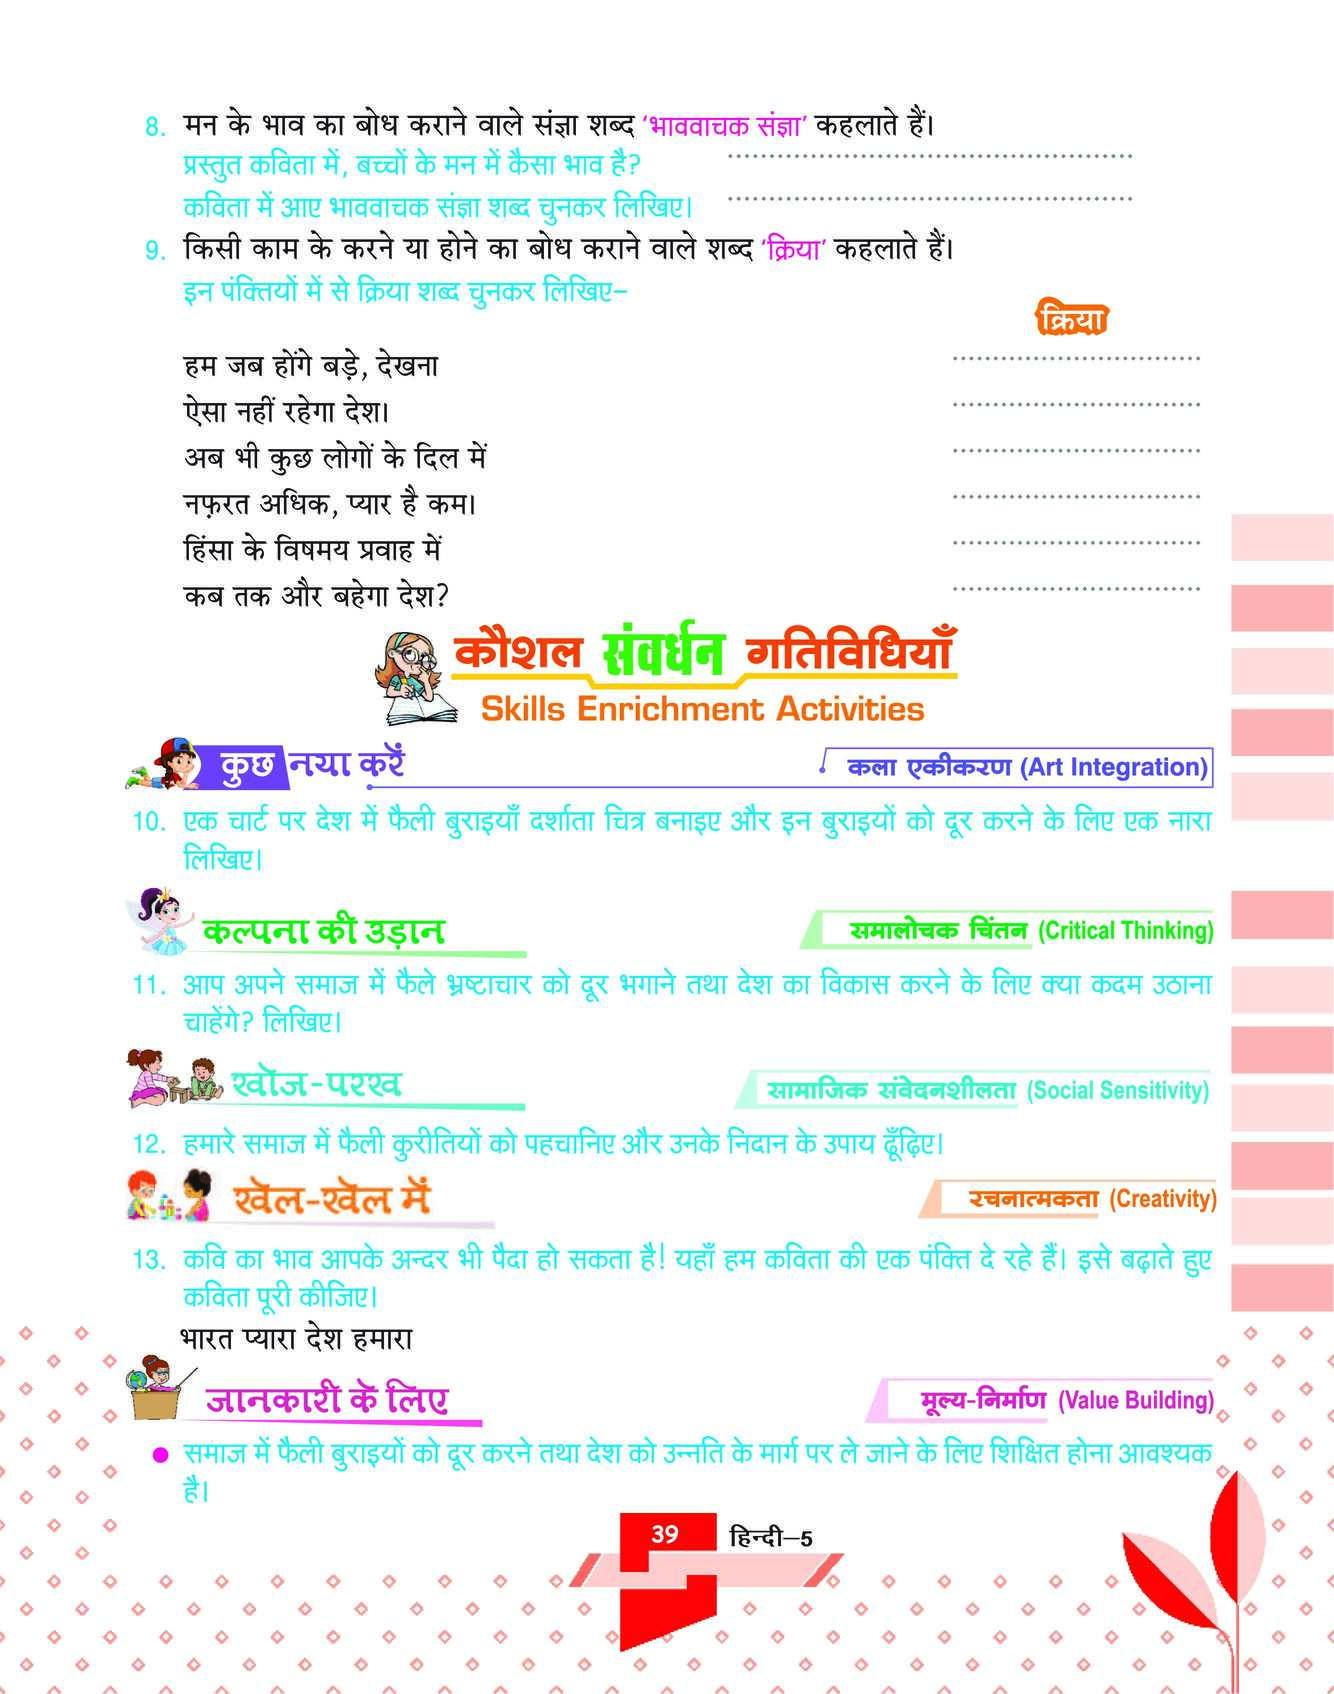 8. मन के भाव का बोध कराने वाले संज्ञा शब्द ‘भाववाचक संज्ञा’ कहलाते हैं।
प्रस्तुत कविता में, बच्चों के मन में कैसा भाव है? ................................................
कविता में आए भाववाचक संज्ञा शब्द चुनकर लिखिए। ................................................
9. किसी काम के करने या होने का बोध कराने वाले शब्द ‘क्रिया’ कहलाते हैं।
इन पंक्तियों में से क्रिया शब्द चुनकर लिखिए–
क्रिया
हम जब होंगे बड़े, देखना ..............................
ऐसा नहीं रहेगा देश। ..............................
अब भी कुछ लोगों के दिल में ..............................
नफ़रत अधिक, प्यार है कम। ..............................
हिंसा के विषमय प्रवाह में ..............................
कब तक और बहेगा देश? ..............................
कौशल संवर्धन गतिविधियाँ
Skills Enrichment Activities
कुछ नया करें कला एकीकरण (Art Integration)
10. एक चार्ट पर देश में फैली बुराइयाँ दर्शाता चित्र बनाइए और इन बुराइयों को दूर करने के लिए एक नारा
लिखिए।
कल्पना की उड़ान समालोचक चिंतन (Critical Thinking)
11. आप अपने समाज में फैले भ्रष्टाचार को दूर भगाने तथा देश का विकास करने के लिए क्या कदम उठाना
चाहेंगे? लिखिए।
खोज-परख सामाजिक संवेदनशीलता (Social Sensitivity)
12. हमारे समाज में फैली कुरीतियों को पहचानिए और उनके निदान के उपाय ढूँढ़िए।
खेल-खेल में रचनात्मकता (Creativity)
13. कवि का भाव आपके अन्दर भी पैदा हो सकता है! यहाँ हम कविता की एक पंक्ति दे रहे हैं। इसे बढ़ाते हुए
कविता पूरी कीजिए।
भारत प्यारा देश हमारा
जानकारी के लिए मूल्य-निर्माण (Value Building)
● समाज में फैली बुराइयों को दूर करने तथा देश को उन्नति के मार्ग पर ले जाने के लिए शिक्षित होना आवश्यक
है।
39 हिन्दी–5